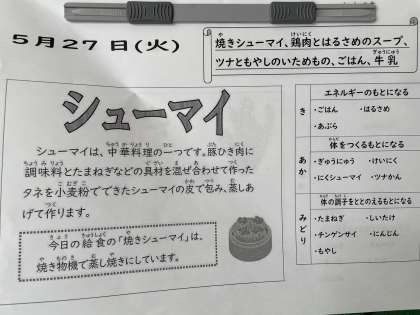 5月27日(火)
焼きシューマイ、鶏肉とはるさめのスープ、
ツナともやしのいためもの、ごはん、牛乳
シューマイ
シューマイは、中華料理の一つです。豚ひき肉に
調味料とたまねぎなどの具材を混ぜ合わせて作った
タネを小麦粉でできたシューマイの皮で包み、蒸しあ
げて作ります。
今日の給食の「焼きシューマイ」は、
焼き物機で蒸し焼きにしています。
エネルギーのもとになる
き
・ごはん ・はるさめ
・あぶら
体をつくるもとになる
あか
・ぎゅうにゅう ・けいにく
・にくシューマイ ・ツナかん
体の調子をととのえるもとになる
みどり
・たまねぎ ・しいたけ
・チンゲンサイ ・にんじん
・もやし